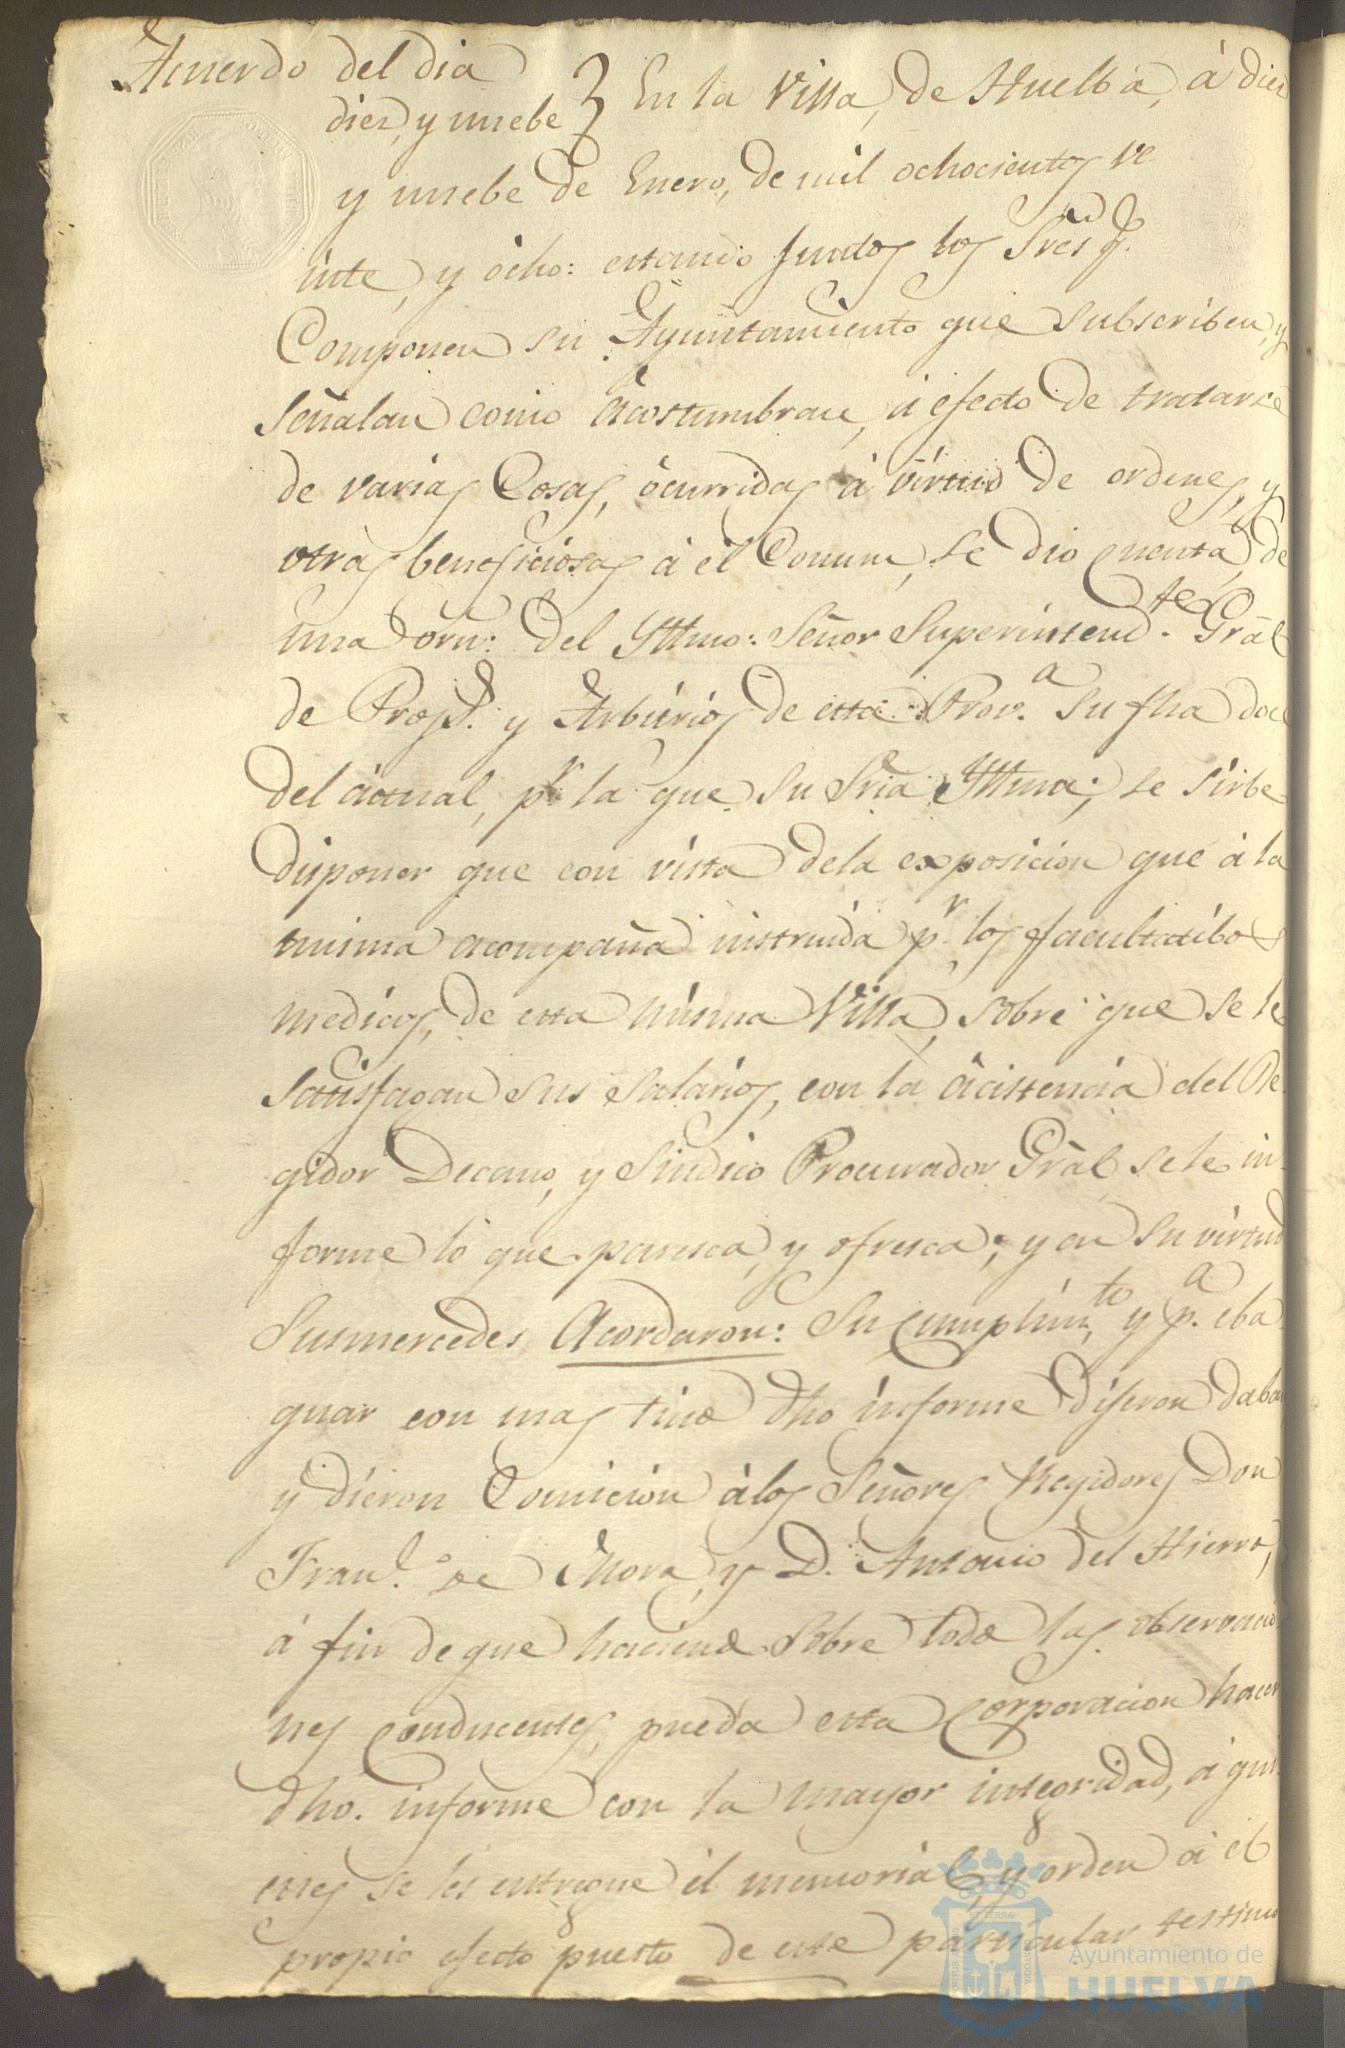 Acuerdo del dia
diez, y nuebe } En la Villa, de Huelba, á diez
y nuebe de Enero, de mil ochocientos ve
inte, y ocho: estando Juntos los Sres q.
Componen su Ayuntamiento que subscriben, y
señalan como acostumbran, á efecto de tratarse
de varias Cosas, ocurridas á virtud de ordenes, y
otras beneficiosas á el Comun, se dio cuenta, de
una orn: del Yltmo: Señor Superintend.te Gräl
de Prop.s y Arbitrios de esta Prov.a su fha doce
del actual, p.r la que su Sria Yltma; se sirbe
disponer que con vista dela exposicion que á la
misma acompaña instruida p.r los facultatibos
medicos, de esta misma Villa, sobre que se le
satisfagan sus salarios, con la acistencia del Re
gidor Decano, y Sindico Procurador Gräl, se le in-
forme lo que paresca, y ofresca; y en su virtud
Susmercedes, Acordaron: Su cumplim.to y p.a eba
guar con mas tino dho informe dijeron daban
y dieron Comicion á los Señores Regidores Don
Fran.co de Mora, y D. Antonio del Hierro,
á fin de que haciendo sobre todo las observacio
nes conducentes, pueda esta Corporacion hacer
dho. informe con la mayor integridad, á qui
enes se les entregue el memorial, y orden á el
propio efecto puesto de este particular testimo
Ayuntamiento de
HUELVA